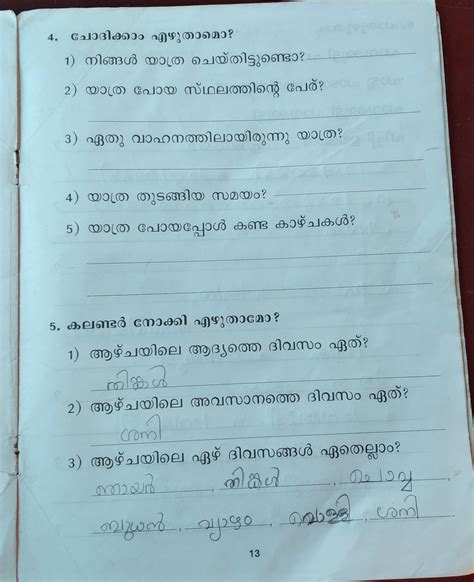 4. ചോദിക്കാം എഴുതാമോ?
1) നിങ്ങൾ യാത്ര ചെയ്തിട്ടുണ്ടോ?
2) യാത്ര പോയ സ്ഥലത്തിന്റെ പേര്?
3) ഏതു വാഹനത്തിലായിരുന്നു യാത്ര?
4) യാത്ര തുടങ്ങിയ സമയം?
5) യാത്ര പോയപ്പോൾ കണ്ട കാഴ്ചകൾ?
5. കലണ്ടർ നോക്കി എഴുതാമോ?
1) ആഴ്ചയിലെ ആദ്യത്തെ ദിവസം ഏത്?
തിങ്കൾ
2) ആഴ്ചയിലെ അവസാനത്തെ ദിവസം ഏത്?
ശനി
3) ആഴ്ചയിലെ ഏഴ് ദിവസങ്ങൾ ഏതെല്ലാം?
ഞായർ , തിങ്കൾ , ചൊവ്വ
ബുധൻ , വ്യാഴം , വെള്ളി , ശനി
13